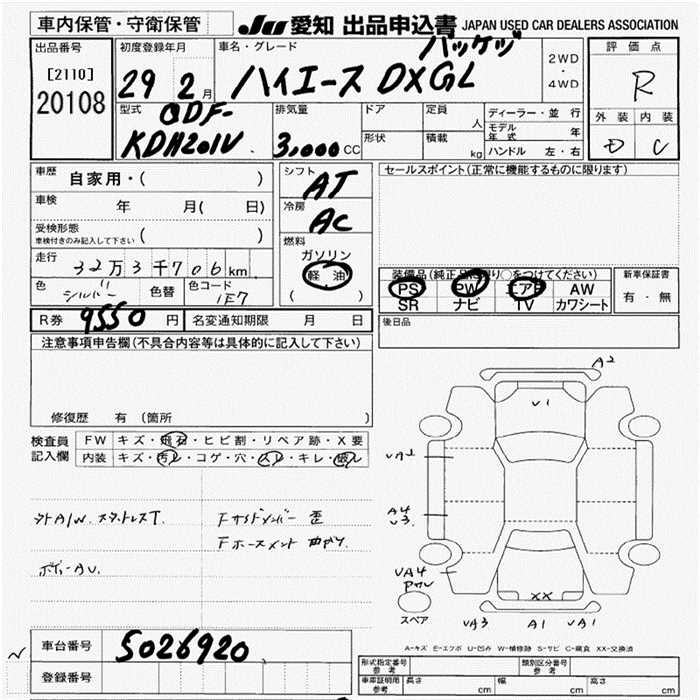 車内保管・守衛保管
JU 愛知 出品申込書 JAPAN USED CAR DEALERS ASSOCIATION
出品番号
[2110]
20108
初度登録年月
29 2月
車名・グレード
パッケッジ
ハイエース DXGL
2WD
・
4WD
評価点
R
外装 内装
D C
型式
QDF-
KDH201V
排気量
3,000CC
ドア
形状
定員
人
積載
kg
ディーラー・並行
モデル年式 年
ハンドル 左・右
車歴
自家用・( )
車検 年 月( 日)
受検形態
車検付きのみ記入して下さい ( )
走行
32万3千706km
色
シルバー
色替
色コード
1E7
R券 9550円
名変通知期限 月 日
シフト
AT
冷房
AC
燃料
ガソリン
軽油
( )
セールスポイント(正常に機能するものに限ります)
装備品(純正品に限り○をつけてください)
PS PW エアB AW
SR ナビ TV カワシート
新車保証書
有・無
後日品
注意事項申告欄(不具合内容等は具体的に記入して下さい)
修復歴 有 (箇所 )
検査員
記入欄
FW キズ・飛石・ヒビ割・リペア跡・X要
内装 キズ・汚レ・コゲ・穴・スレ・キレ・破レ
外A/W. スタットレスT.
ボディーAU.
Fサイドメンバー 歪
Fホースメント 曲がり.
A2
V1
UA2
A4
U3
UA4
XX
UA3 A1 UA1
スペア
A-キズ E-エクボ U-凹み W-補修跡 S-サビ C-腐食 XX-交換済
車台番号
5026920
登録番号
形式指定番号
参考
類別区分番号
参考
車庫証明用
参考
長さ cm
幅 cm
高さ cm